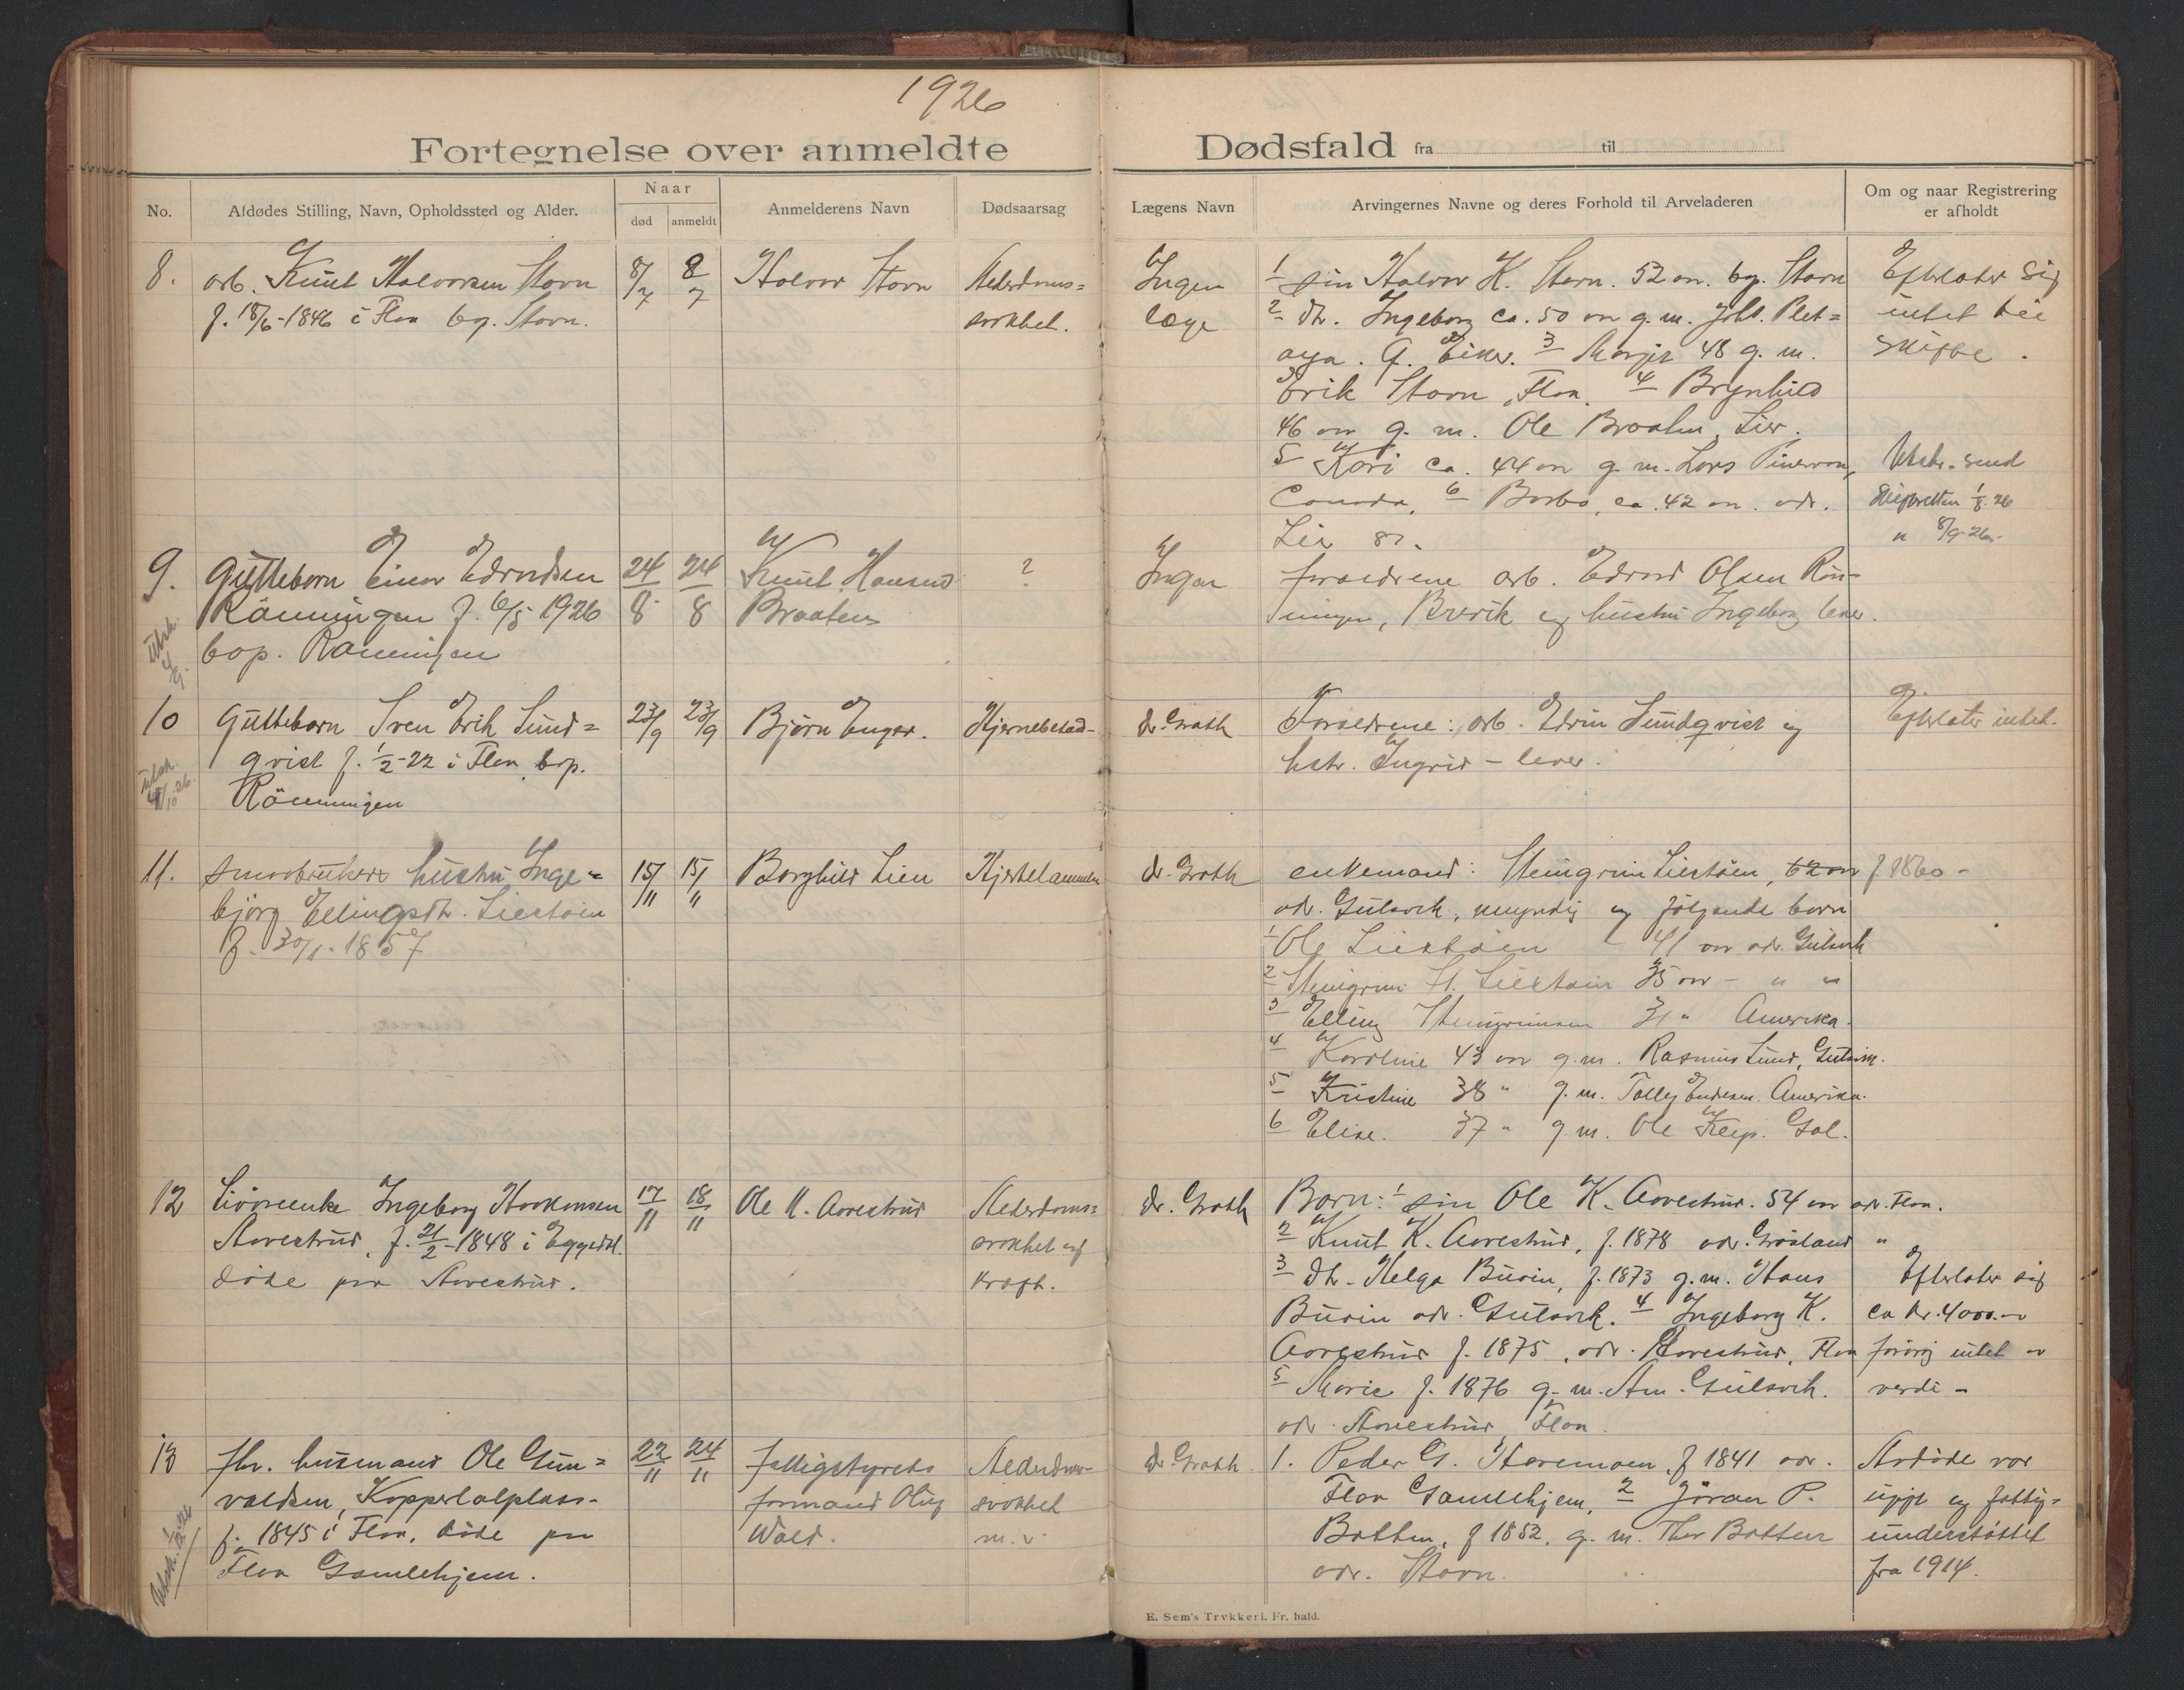 1926
Fortegnelse over anmeldte Dødsfald fra til
No.
Afdødes Stilling, Navn, Opholdssted og Alder.
Naar
død
anmeldt
Anmelderens Navn
Dødsaarsag
Lægens Navn
Arvingernes Navne og deres Forhold til Arveladeren
Om og naar Registrering
er afholdt
8.
arb. Knut Halvorsen Stavn
f. 18/6-1846 i Flaa bop. Stavn.
8/7
8/7
Halvor Stavn
Alderdoms=
svakhet.
Ingen
læge
1 søn Halvor K. Stavn. 52 aar. bop. Stavn
2 dtr. Ingeborg ca. 50 aar g.m. Johs. Plet=
aya. Ø. Eiker. 3 Margit 48 g. m.
Erik Stavn, Flaa. 4 Brynhild
46 aar g. m. Ole Braaten, Lier.
5 Kari ca. 44 aar g. m. Lars
Canada, 6 Barbo, ca. 42 aar. adr.
Lier st.
Efterlater sig
intet til
skifte.
Utskr. send
Skifteretten 1/8-26
" 8/9-26.
9.
Guttebarn Einar Edvardsen
Rønningen f. 6/5 1926
bop. Rønningen
Utsk.
4/9
24/8
24/8
Knut Hansen
Braaten
?
Ingen
foreldrene arb. Edvard Olsen Røn-
ningen, Brevik og hustru Ingeborg lever.
10
Guttebarn Sven Erik Lund=
qvist f. 1/2-22 i Flaa, bop.
Rønningen
Utsk.
4/10 26
23/9
23/9
Bjørn Enger.
Hjernebetæn-
dr. Groth
Foreldrene: arb. Edvin Lundqvist og
hstr. Ingrid - lever.
Efterlater intet.
11.
smaabrukers hustru Inge=
bjørg Ellingsdtr. Liestøen
f. 30/1-1857
15/11
15/11
Borghild Lien
Hjertelammelse
dr. Groth
enkemand: Steingrim Liestøen, 62 aar f 1860-
adr. Gulsvik, myndig og følgende barn
1 Ole Liestøen - 41 aar adr. Gulsvik
2 Steingrim St. Liestøen 35 aar - " "
3 Elling Steingrimsen 31 " Amerika.
4 Karoline 43 aar g.m. Rasmus Lund, Gulsvik.
5 Kristine 38 " g.m. Tolley Endresen. Amerika.
6 Elise. 37 " g m. Ole Kleip. Gol.
12
Livøreenke Ingeborg Haakonsen
Aavestrud, f. 21/2-1848 i Eggedal.
døde paa Aavestrud.
17/11
18/11
Ole K. Aavestrud
Alderdoms=
svakhet og
kræft.
dr. Groth
Barn: 1 søn Ole K. Aavestrud. 54 aar adr. Flaa.
2 Knut K. Aavestrud, f. 1878 adr. Grøsland "
3 dtr. Helga Buvin, f. 1873 g.m. Hans
Buvin adr. Gulsvik. 4 Ingeborg K.
Aavestrud f. 1875, adr. Aavestrud, Flaa
5 Marie f. 1876 g. m. Am. Gulsvik.
adr. Aavestrud, Flaa.
Efterlater sig
ca kr. 4000.-
forøvrig intet av
verdi -
13
fhv. husmand Ole Gun=
valdsen, Koppertalplass-
f. 1845 i Flaa, døde paa
Flaa Gamlehjem.
Utsk. 1/12-26
22/11
24/11
fattigstyrets
formand Oluf
Wold.
Alderdoms-
svakhet
m. v.
dr. Groth
1. Peder G. Stavemoen, f 1841 adr.
Flaa Gamlehjem, 2 Jøran P.
Botten, f 1852, g. m. Thor Botten
adr. Stavn.
Avdøde var
ugift og fattig=
understøttet
fra 1914.
E. Sem's Trykkeri, Fr. hald.